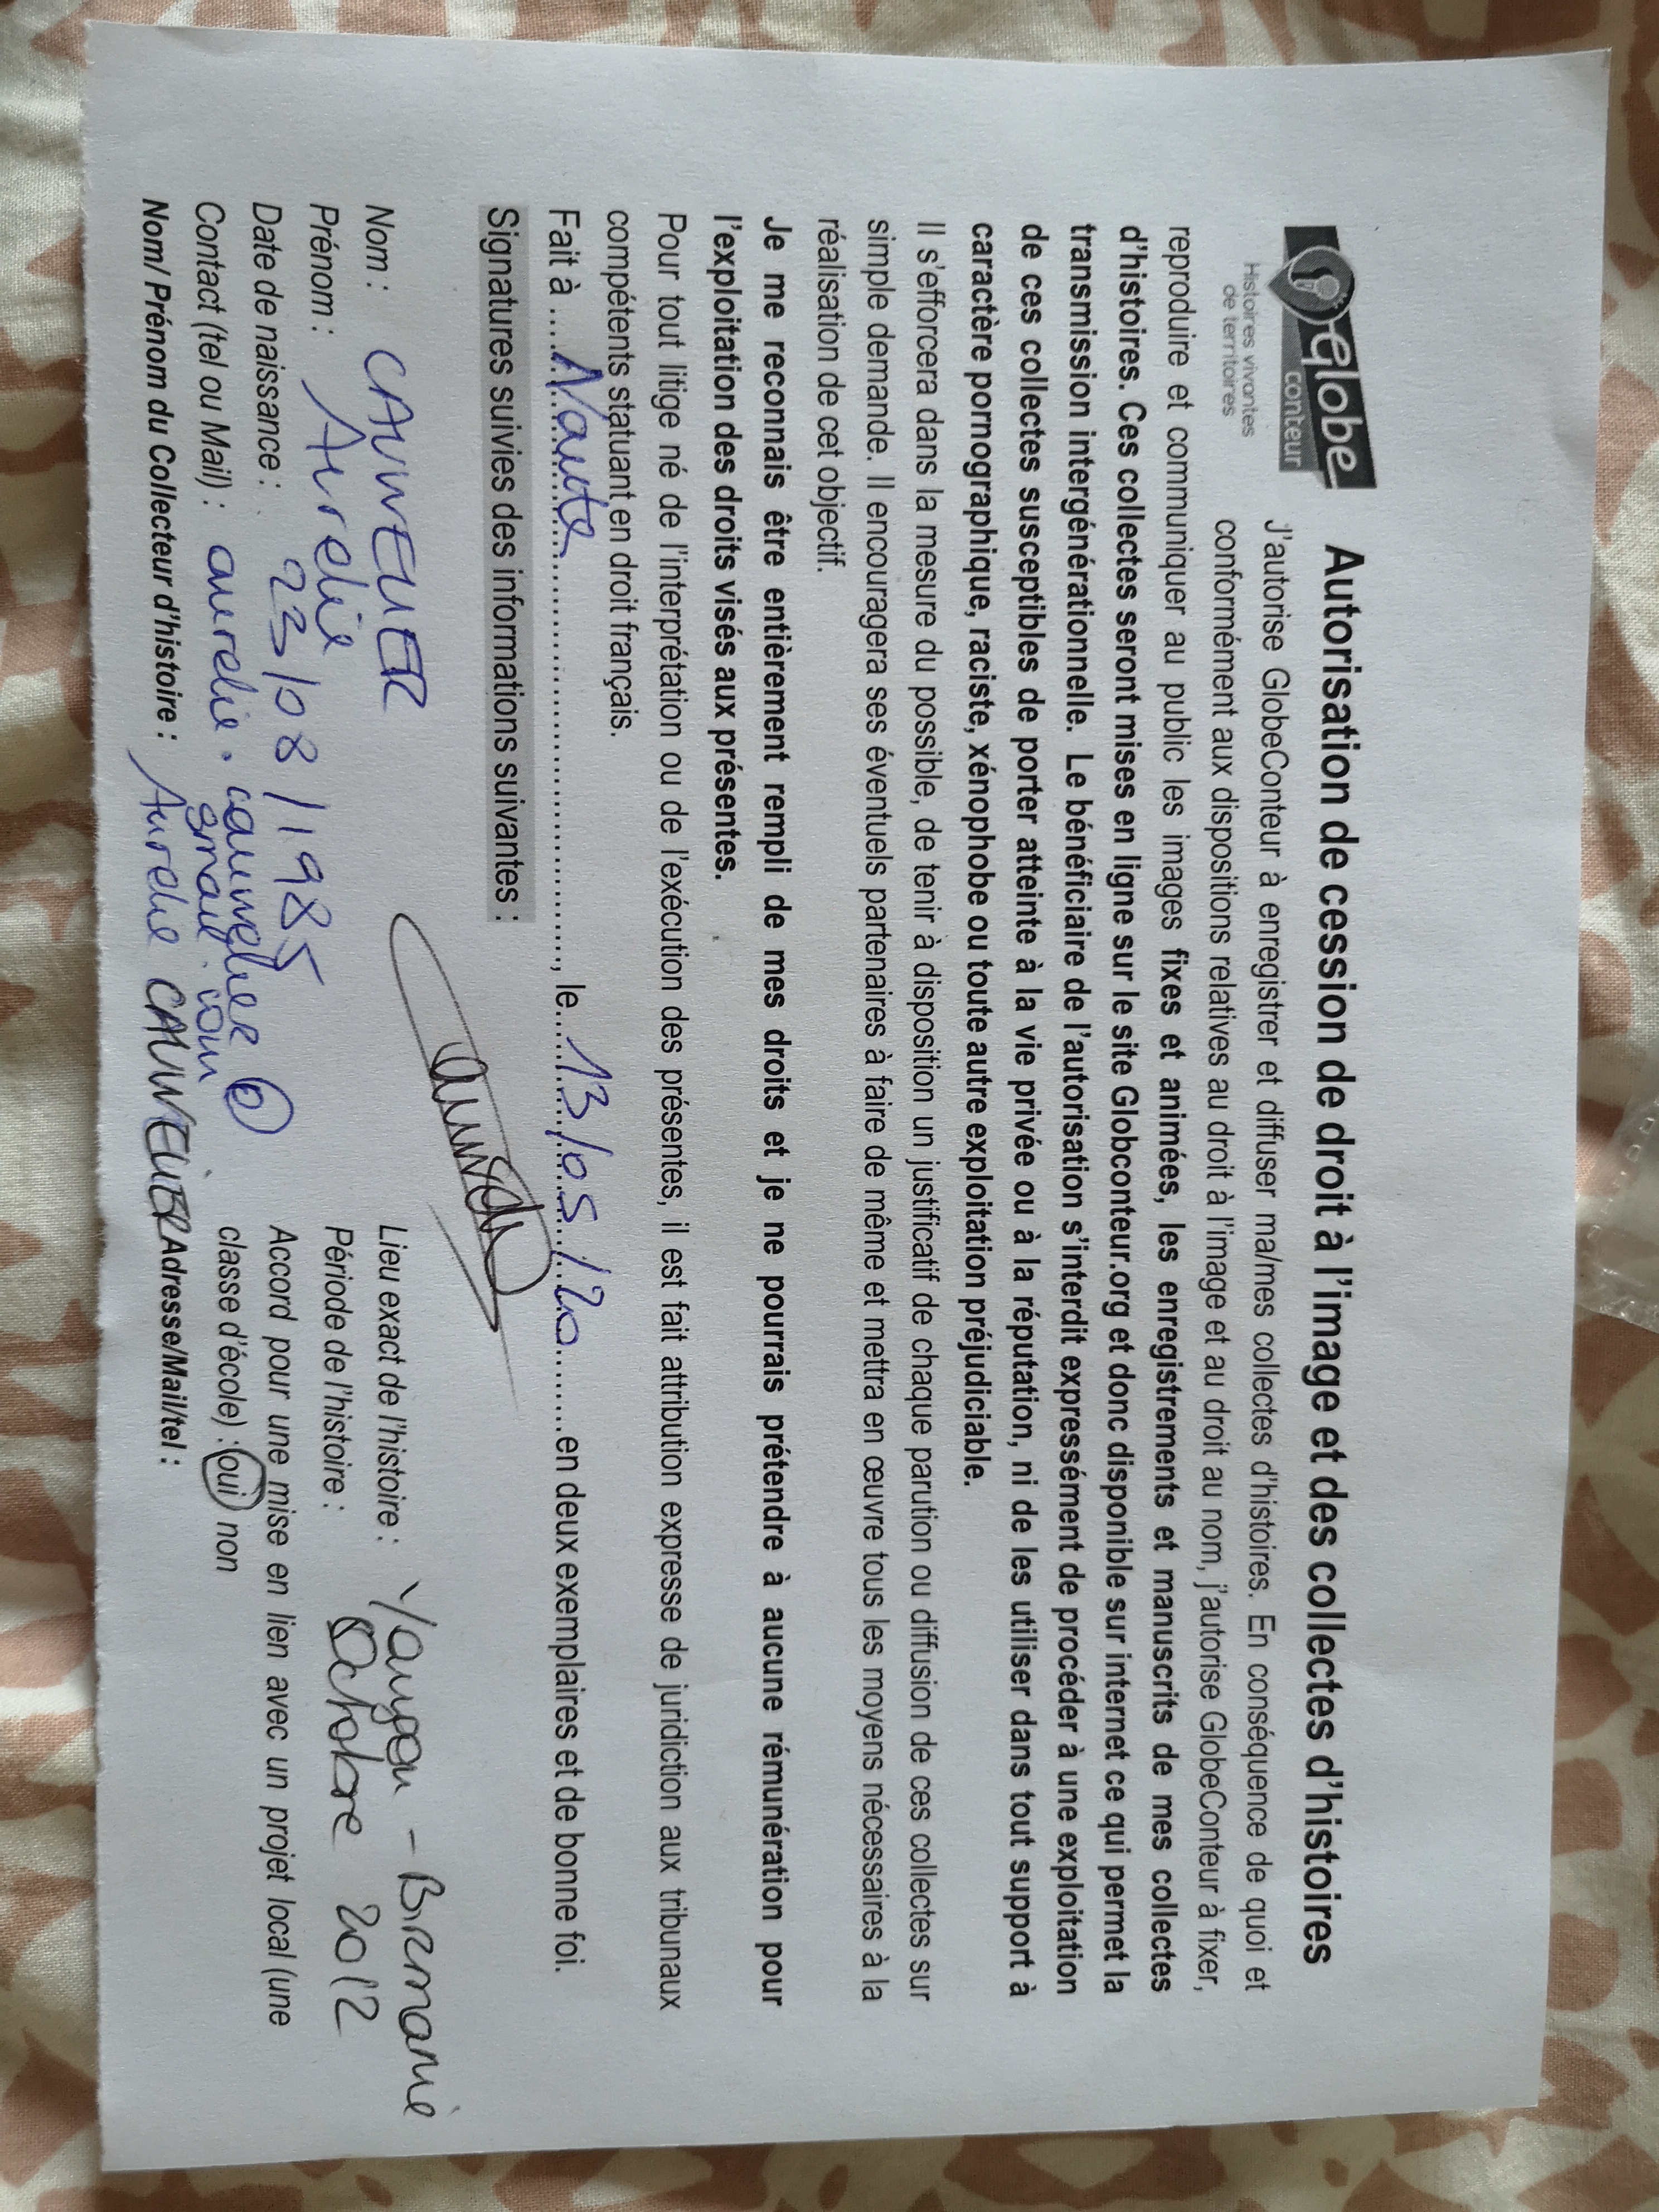 Globe
conteur
Histoires vivantes
de territoires
Autorisation de cession de droit à l'image et des collectes d'histoires
J'autorise GlobeConteur à enregistrer et diffuser ma/mes collectes d'histoires. En conséquence de quoi et
conformément aux dispositions relatives au droit à l'image et au droit au nom, j'autorise GlobeConteur à fixer,
reproduire et communiquer au public les images fixes et animées, les enregistrements et manuscrits de mes collectes
d'histoires. Ces collectes seront mises en ligne sur le site Globconteur.org et donc disponible sur internet ce qui permet la
transmission intergénérationnelle. Le bénéficiaire de l'autorisation s'interdit expressément de procéder à une exploitation
de ces collectes susceptibles de porter atteinte à la vie privée ou à la réputation, ni de les utiliser dans tout support à
caractère pornographique, raciste, xénophobe ou toute autre exploitation préjudiciable.
Il s'efforcera dans la mesure du possible, de tenir à disposition un justificatif de chaque parution ou diffusion de ces collectes sur
simple demande. Il encouragera ses éventuels partenaires à faire de même et mettra en œuvre tous les moyens nécessaires à la
réalisation de cet objectif.
Je me reconnais être entièrement rempli de mes droits et je ne pourrais prétendre à aucune rémunération pour
l'exploitation des droits visés aux présentes.
Pour tout litige né de l'interprétation ou de l'exécution des présentes, il est fait attribution expresse de juridiction aux tribunaux
compétents statuant en droit français.
Fait à .... Nante ...................., le... 13/05/20 ........en deux exemplaires et de bonne foi.
Signatures suivies des informations suivantes :
Nom : CAUVELIER
Prénom : Aurelie
Date de naissance : 23/08/1985
Contact (tel ou Mail) : aurelie.cauvelier @
gmail.com
Nom/ Prénom du Collecteur d'histoire : Aurelie CAUVELIER
Lieu exact de l'histoire : Yangon - Birmanie
Période de l'histoire : Octobre 2012
Accord pour une mise en lien avec un projet local (une
classe d'école) : oui non
Adresse/Mail/tel :